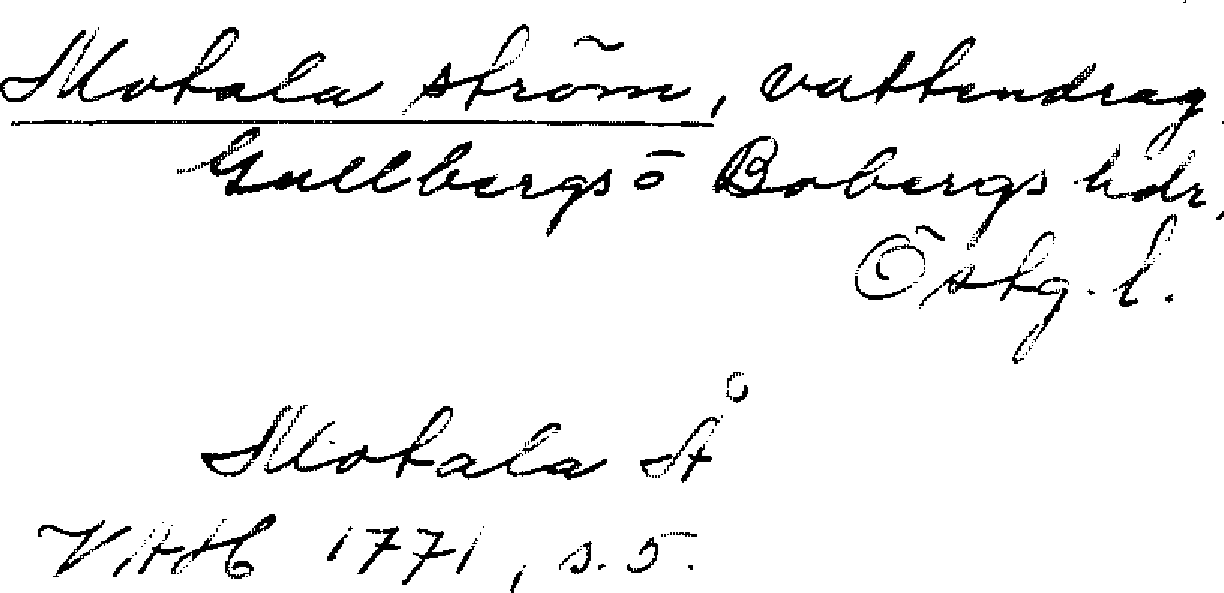 Motala ström, vattendrag,
Gullbergs o Bobergs hdr,
Östg. l.
Motala Å
VAH 1771, s. 5.